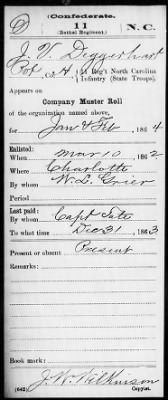 (Confederate.)
D 11 N.C.
(Bethel Regiment.)
J. V. Deggerhart
Pvt, Co. H, 11 Reg't North Carolina
Infantry (State Troops).
Appears on
Company Muster Roll
of the organization named above,
for Jan & Feb, 1864
Enlisted:
When Mar 10, 1862
Where Charlotte
By whom W. L. Grier
Period
Last paid:
By whom Capt Tate
To what time Dec 31, 1863
Present or absent Present
Remarks:
Book mark:
J. W. Wilkinson
(642) Copyist.